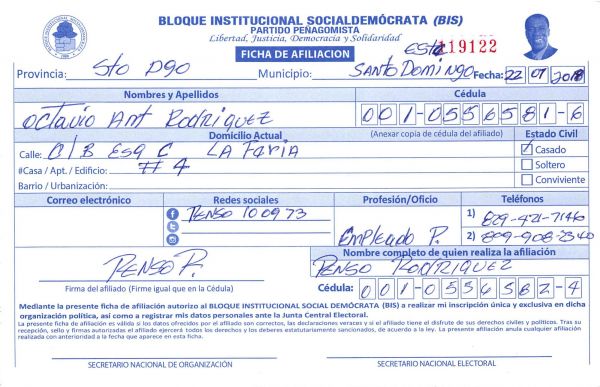 BLOQUE INSTITUCIONAL SOCIALDEMÓCRATA (BIS)
PARTIDO PEÑAGOMISTA
Libertad, Justicia, Democracia y Solidaridad
FICHA DE AFILIACION
Este 119122
Provincia: Sto Dgo Municipio: SANTO DOMINGO Fecha: 22 07 2018
Nombres y Apellidos Cédula
Octavio Ant Rodriguez 001-0556581-6
Domicilio Actual (Anexar copia de cédula del afiliado) Estado Civil
Calle: C/B ESQ C LA FARIA Casado
#Casa / Apt. / Edificio: # 4 Soltero
Barrio / Urbanización: Conviviente
Correo electrónico Redes sociales Profesión/Oficio Teléfonos
RENSO 100973 1) 829-421-7146
EmpleAdo P. 2) 809-908-2340
Nombre completo de quien realiza la afiliación
RENSO R. RENSO RODRIGUEZ
Firma del afiliado (Firme igual que en la Cédula) Cédula: 001-0556582-4
Mediante la presente ficha de afiliación autorizo al BLOQUE INSTITUCIONAL SOCIAL DEMÓCRATA (BIS) a realizar mi inscripción única y exclusiva en dicha
organización política, así como a registrar mis datos personales ante la Junta Central Electoral.
La presente ficha de afiliación es válida si los datos ofrecidos por el afiliado son correctos, las declaraciones veraces y si el afiliado tiene el disfrute de sus derechos civiles y políticos. Tras su
recepción, sello y firmas autorizadas el afiliado ejercerá todos los derechos y los deberes estatutariamente sancionados, de acuerdo a la ley. La presente afiliación anula cualquier afiliación
realizada con anterioridad a la fecha que aparece en esta ficha.
SECRETARIO NACIONAL DE ORGANIZACIÓN SECRETARIO NACIONAL ELECTORAL